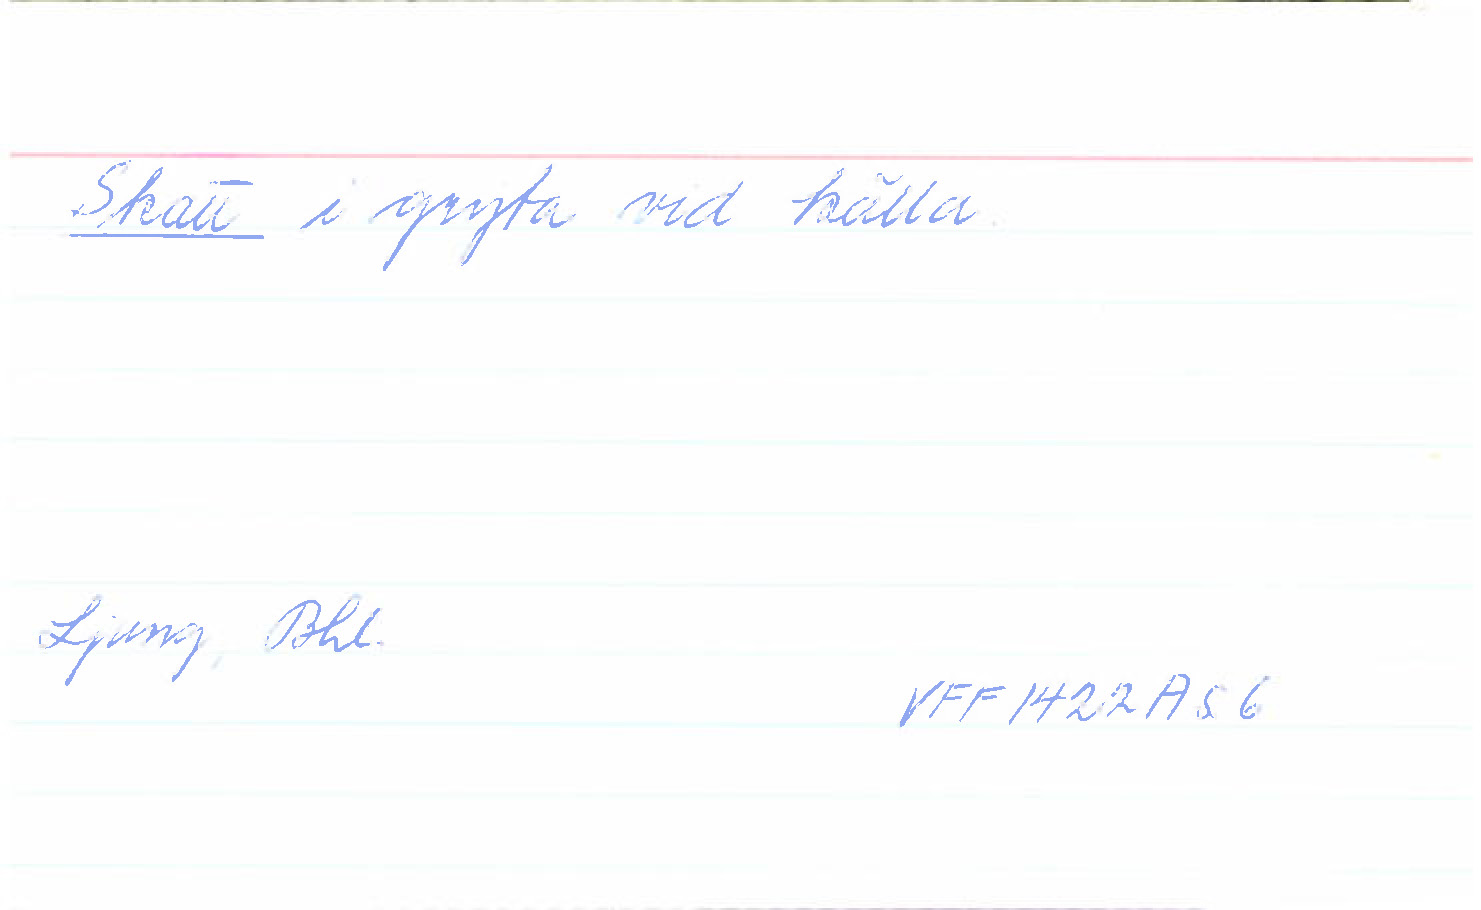 Skatt i gryta vid källa.
Ljung, Bhl.
VFF 1422 A s 6